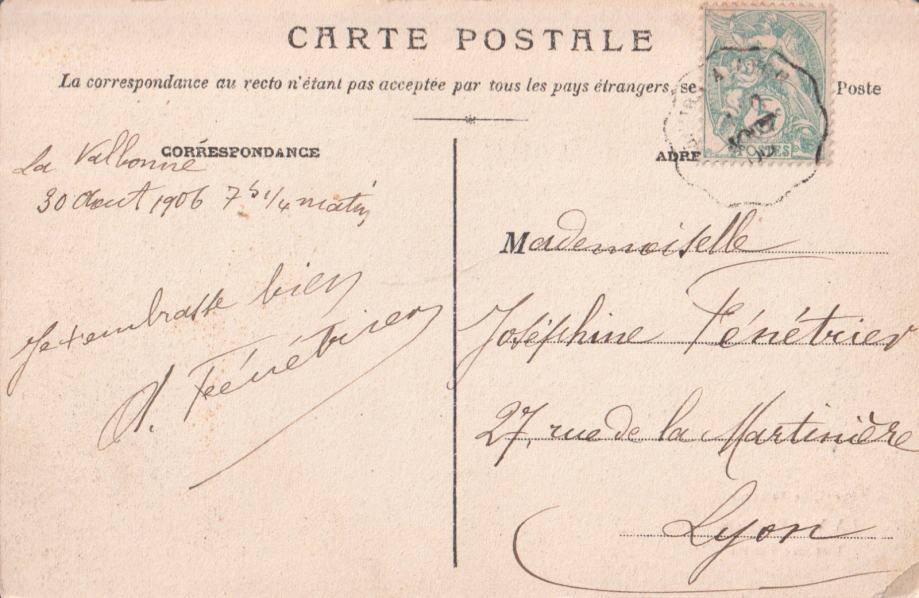 CARTE POSTALE
La correspondance au recto n'étant pas acceptée par tous les pays étrangers, se Poste
CORRESPONDANCE
ADRE
5
POSTES
La Valbonne
30 Aout 1906 7h 1/4 matin
Je t'embrasse bien
Fénétrier
Mademoiselle
Joséphine Fénétrier
27, rue de la Martinière
Lyon